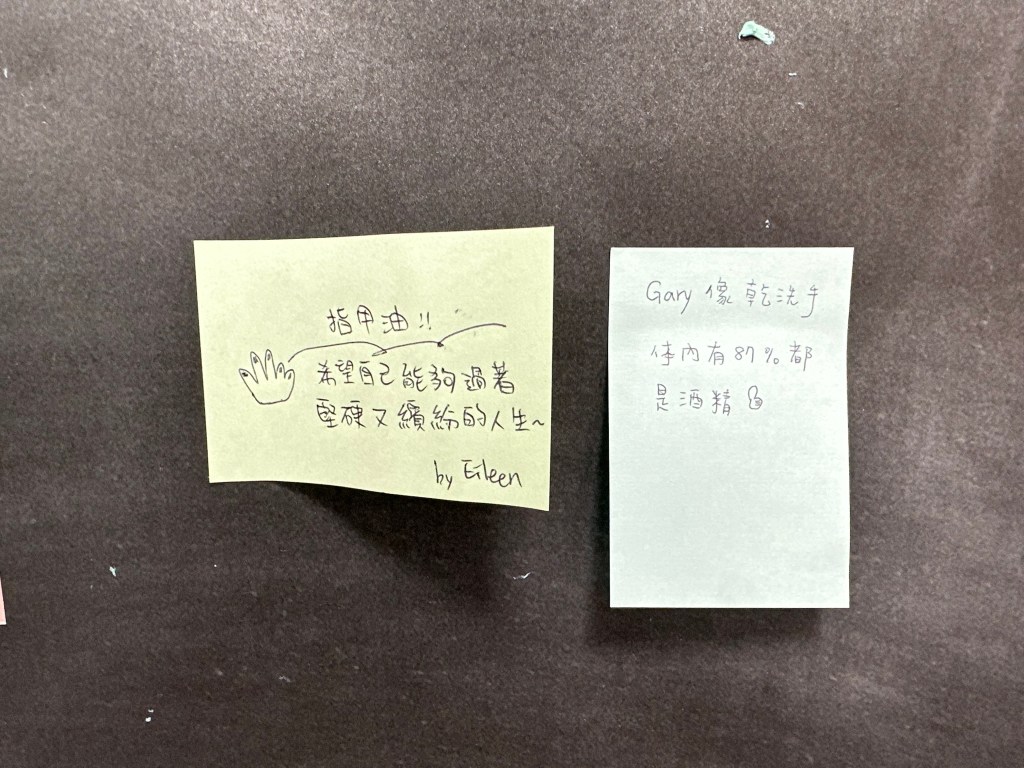 指甲油!!
希望自己能夠過著
堅硬又繽紛的人生~
by Eileen
Gary 像乾洗手
体內有87%都
是酒精